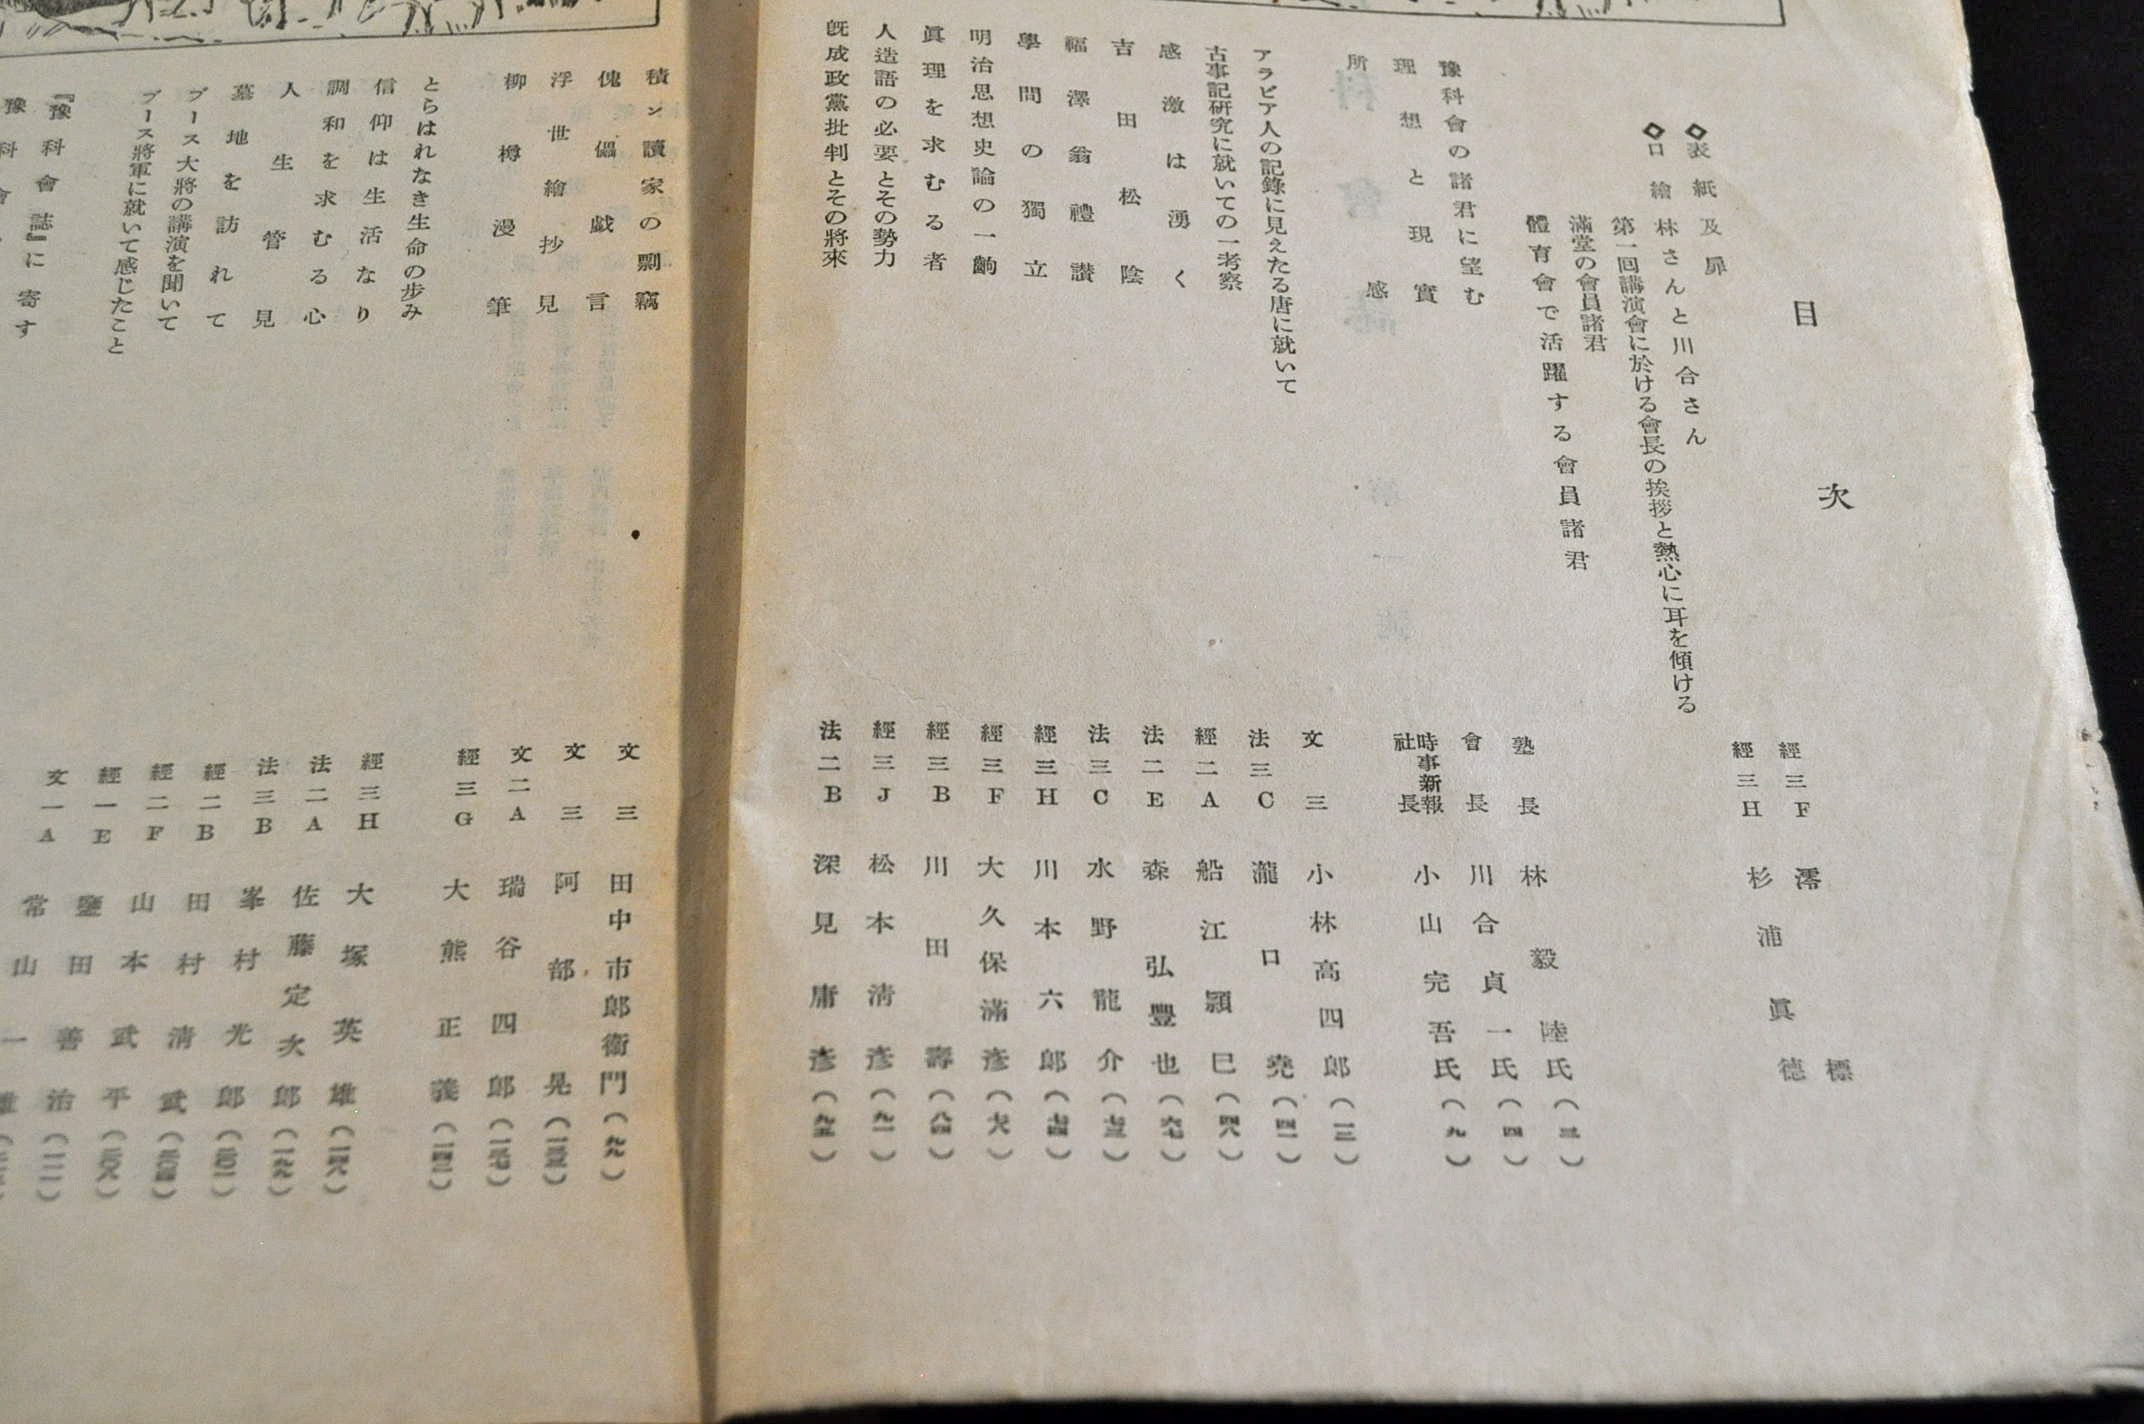 目次
◇表紙及扉 經三F 澪標
◇口繪 林さんと川合さん 經三H 杉浦眞德
第一回講演會に於ける會長の挨拶と熱心に耳を傾ける
滿堂の會員諸君
體育會で活躍する會員諸君
豫科會の諸君に望む 塾長 林毅陸氏(三)
理想と現實 會長 川合貞一氏(四)
所感 時事新報社長 小山完吾氏(九)
アラビア人の記錄に見えたる唐に就いて 文三 小林高四郎(一三)
古事記研究に就いての一考察 法三C 瀧口堯(四一)
感激は湧く 經二A 船江頴巳(四八)
吉田松陰 法二E 森弘豐也(六七)
福澤翁禮讃 法三C 水野龍介(七三)
學問の獨立 經三H 川本六郎(七四)
明治思想史論の一齣 經三F 大久保滿彥(七六)
眞理を求むる者 經三B 川田壽(八四)
人造語の必要とその勢力 經三J 松本清彥(九一)
既成政黨批判とその將來 法二B 深見庸彥(九五)
積ン讀家の剽竊 文三 田中市郎衞門(九九)
傀儡戯言 文三 阿部晃
浮世繪抄見 文二A 瑞谷四郎
柳樽漫筆 經三G 大熊正義
とらはれなき生命の步み 經三H 大塚英雄
信仰は生活なり 法二A 佐藤定次郎
調和を求むる心 法三B 峯村光郎
人生管見 經二B 田村清武
墓地を訪れて 經二F 山本武平
ブース大將の講演を聞いて 經一E 鹽田善治
ブース將軍に就いて感じたこと 文一A 常山一雄
『豫科會誌』に寄す
豫科會